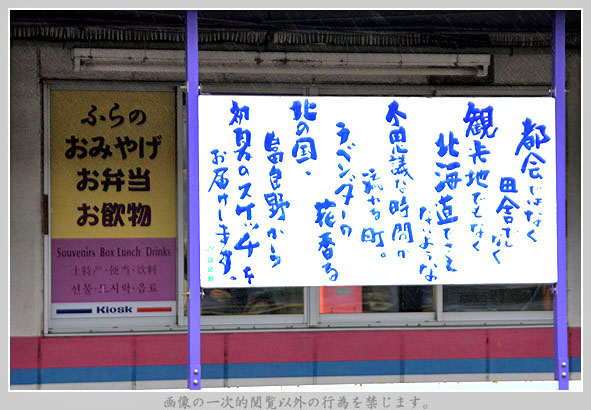 ふらの
おみやげ
お弁当
お飲物
Souvenirs Box Lunch Drinks
土特产·便当·饮料
선물·도시락·음료
Kiosk
都会ではなく
田舎でもなく
観光地でもなく
北海道でさえ
ないような
不思議な時間が
流れる町。
ラベンダーの
花香る
北の国、
富良野から
初夏のスケッチを
お届けします。
画像の一次的閲覧以外の行為を禁じます。